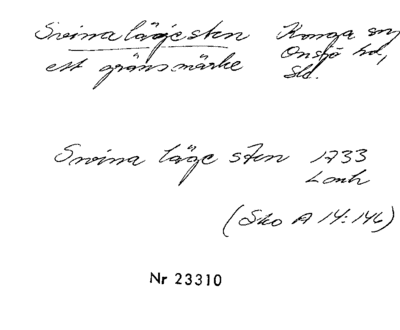 Svinalägesten Konga sn,
ett gränsmärke Onsjö hd,
Skå.
Svina läge sten 1733
Lantm
(Sko A 14:146)
Nr 23310